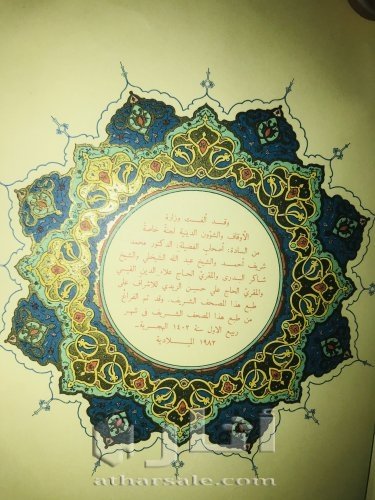 وقد ألفت وزارة
الأوقاف والشؤون الدينية لجنة خاصة
من السادة: أصحاب الفضيلة، الدكتور محمد
شريف أحمد والشيخ عبد الله الشيخلي والشيخ
شاكر البدري والمقرئ الحاج علاء الدين القيسي
والمقرئ الحاج علي حسين الزيدي للاشراف على
طبع هذا المصحف الشريف. وقد تم الفراغ
من طبع هذا المصحف الشريف في شهر
ربيع الاول سنة ١٤٠٣ الهجرية-
١٩٨٢ الميلادية
أثار
atharsale.com